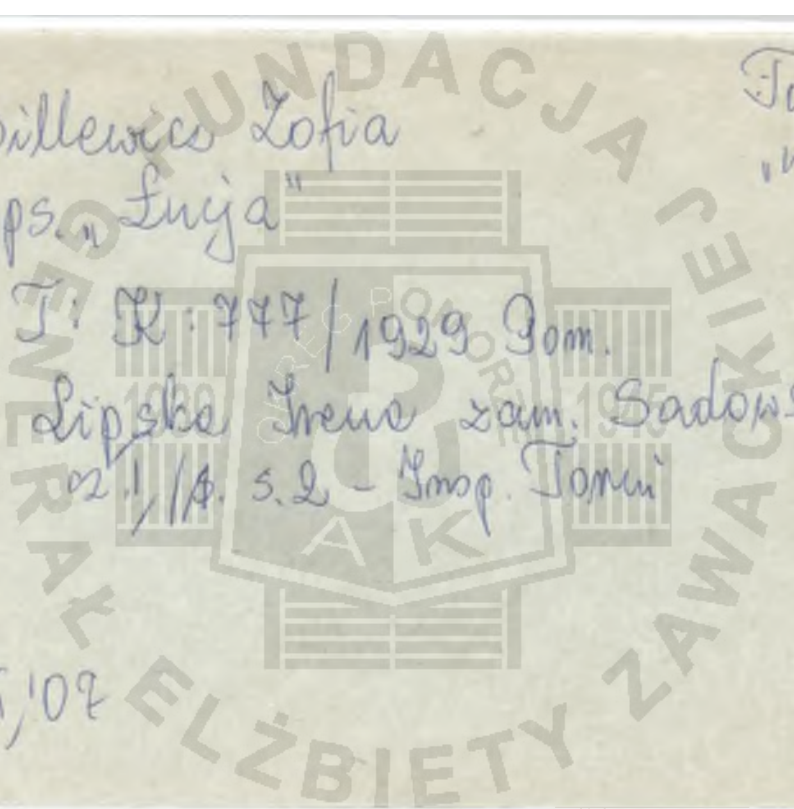 illewicz Zofia
ps. „Łucja"
T: K: 777/1929 Pom.
Lipska Irena zam. Sadows
cz. I, /A. s. 2 - Insp. Toruń
,'07
FUNDACJA
GENERAŁ ELŻBIETY ZAWACKIEJ
OKRĘG POMORZE
1939
1945
AK